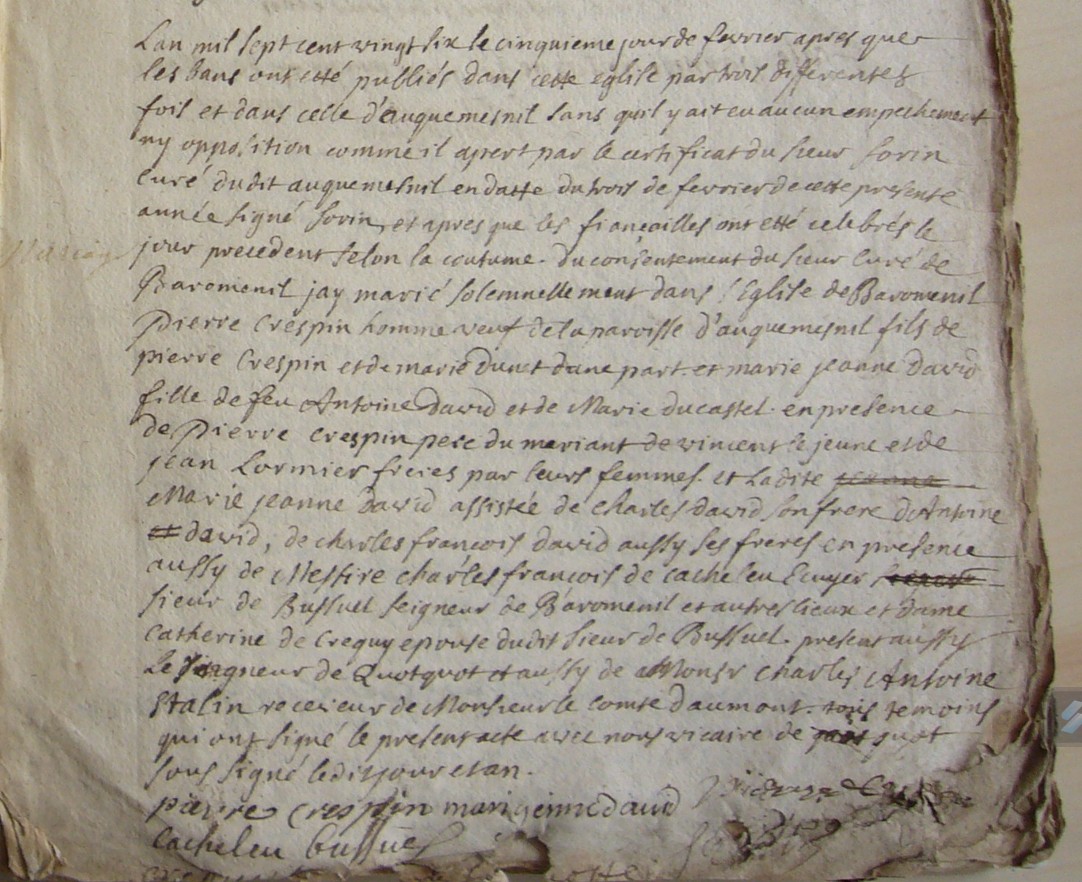 Lan mil sept cent vingt six le cinquieme jour de fevrier apres que
les bans ont etté publiés dans cette eglise par trois differentes
fois et dans celle d'auquemesnil sans quil y ait eu aucun empechement
ny opposition comme il apert par le certificat du sieur sorin
Curé dudit auquemesnil en datte du trois de fevrier de cette presente
année signé sorin, et apres que les fiançailles ont etté celebrés le
Mariage
jour precedent selon la coutume. du consentement du sieur Curé de
Baromenil jay marié solemnellement dans l'Eglise de Baromenil
Pierre Crespin homme veuf de la paroisse d'auquemesnil fils de
pierre Crespin et de marie Dunet dune part. et marie jeanne David
fille de feu Antoine David et de Marie ducastel. en presence
de Pierre Crespin pere du mariant de vincent le jeune et de
jean Lormier freres par leurs femmes. et Ladite
Marie jeanne David assistée de Charles David son frere d'Antoine
et david, de charles francois david aussy ses freres en presence
aussy de Messire charles francois de cacheleu Ecuyer
sieur de Bussuel seigneur de Baromenil et autres lieux et dame
Catherine de Crequy epouse dudit sieur de Bussuel. present aussy
Le seigneur de Quotquot et aussy de Monsr Charles Antoine
Stalin receveur de Monsieur le comte d'aumont. tous temoins
qui ont signé le present acte avec nous vicaire de quot
sous signé ledit jour et an.
pierre Crespin marigenne daud
Cacheleu bussuel